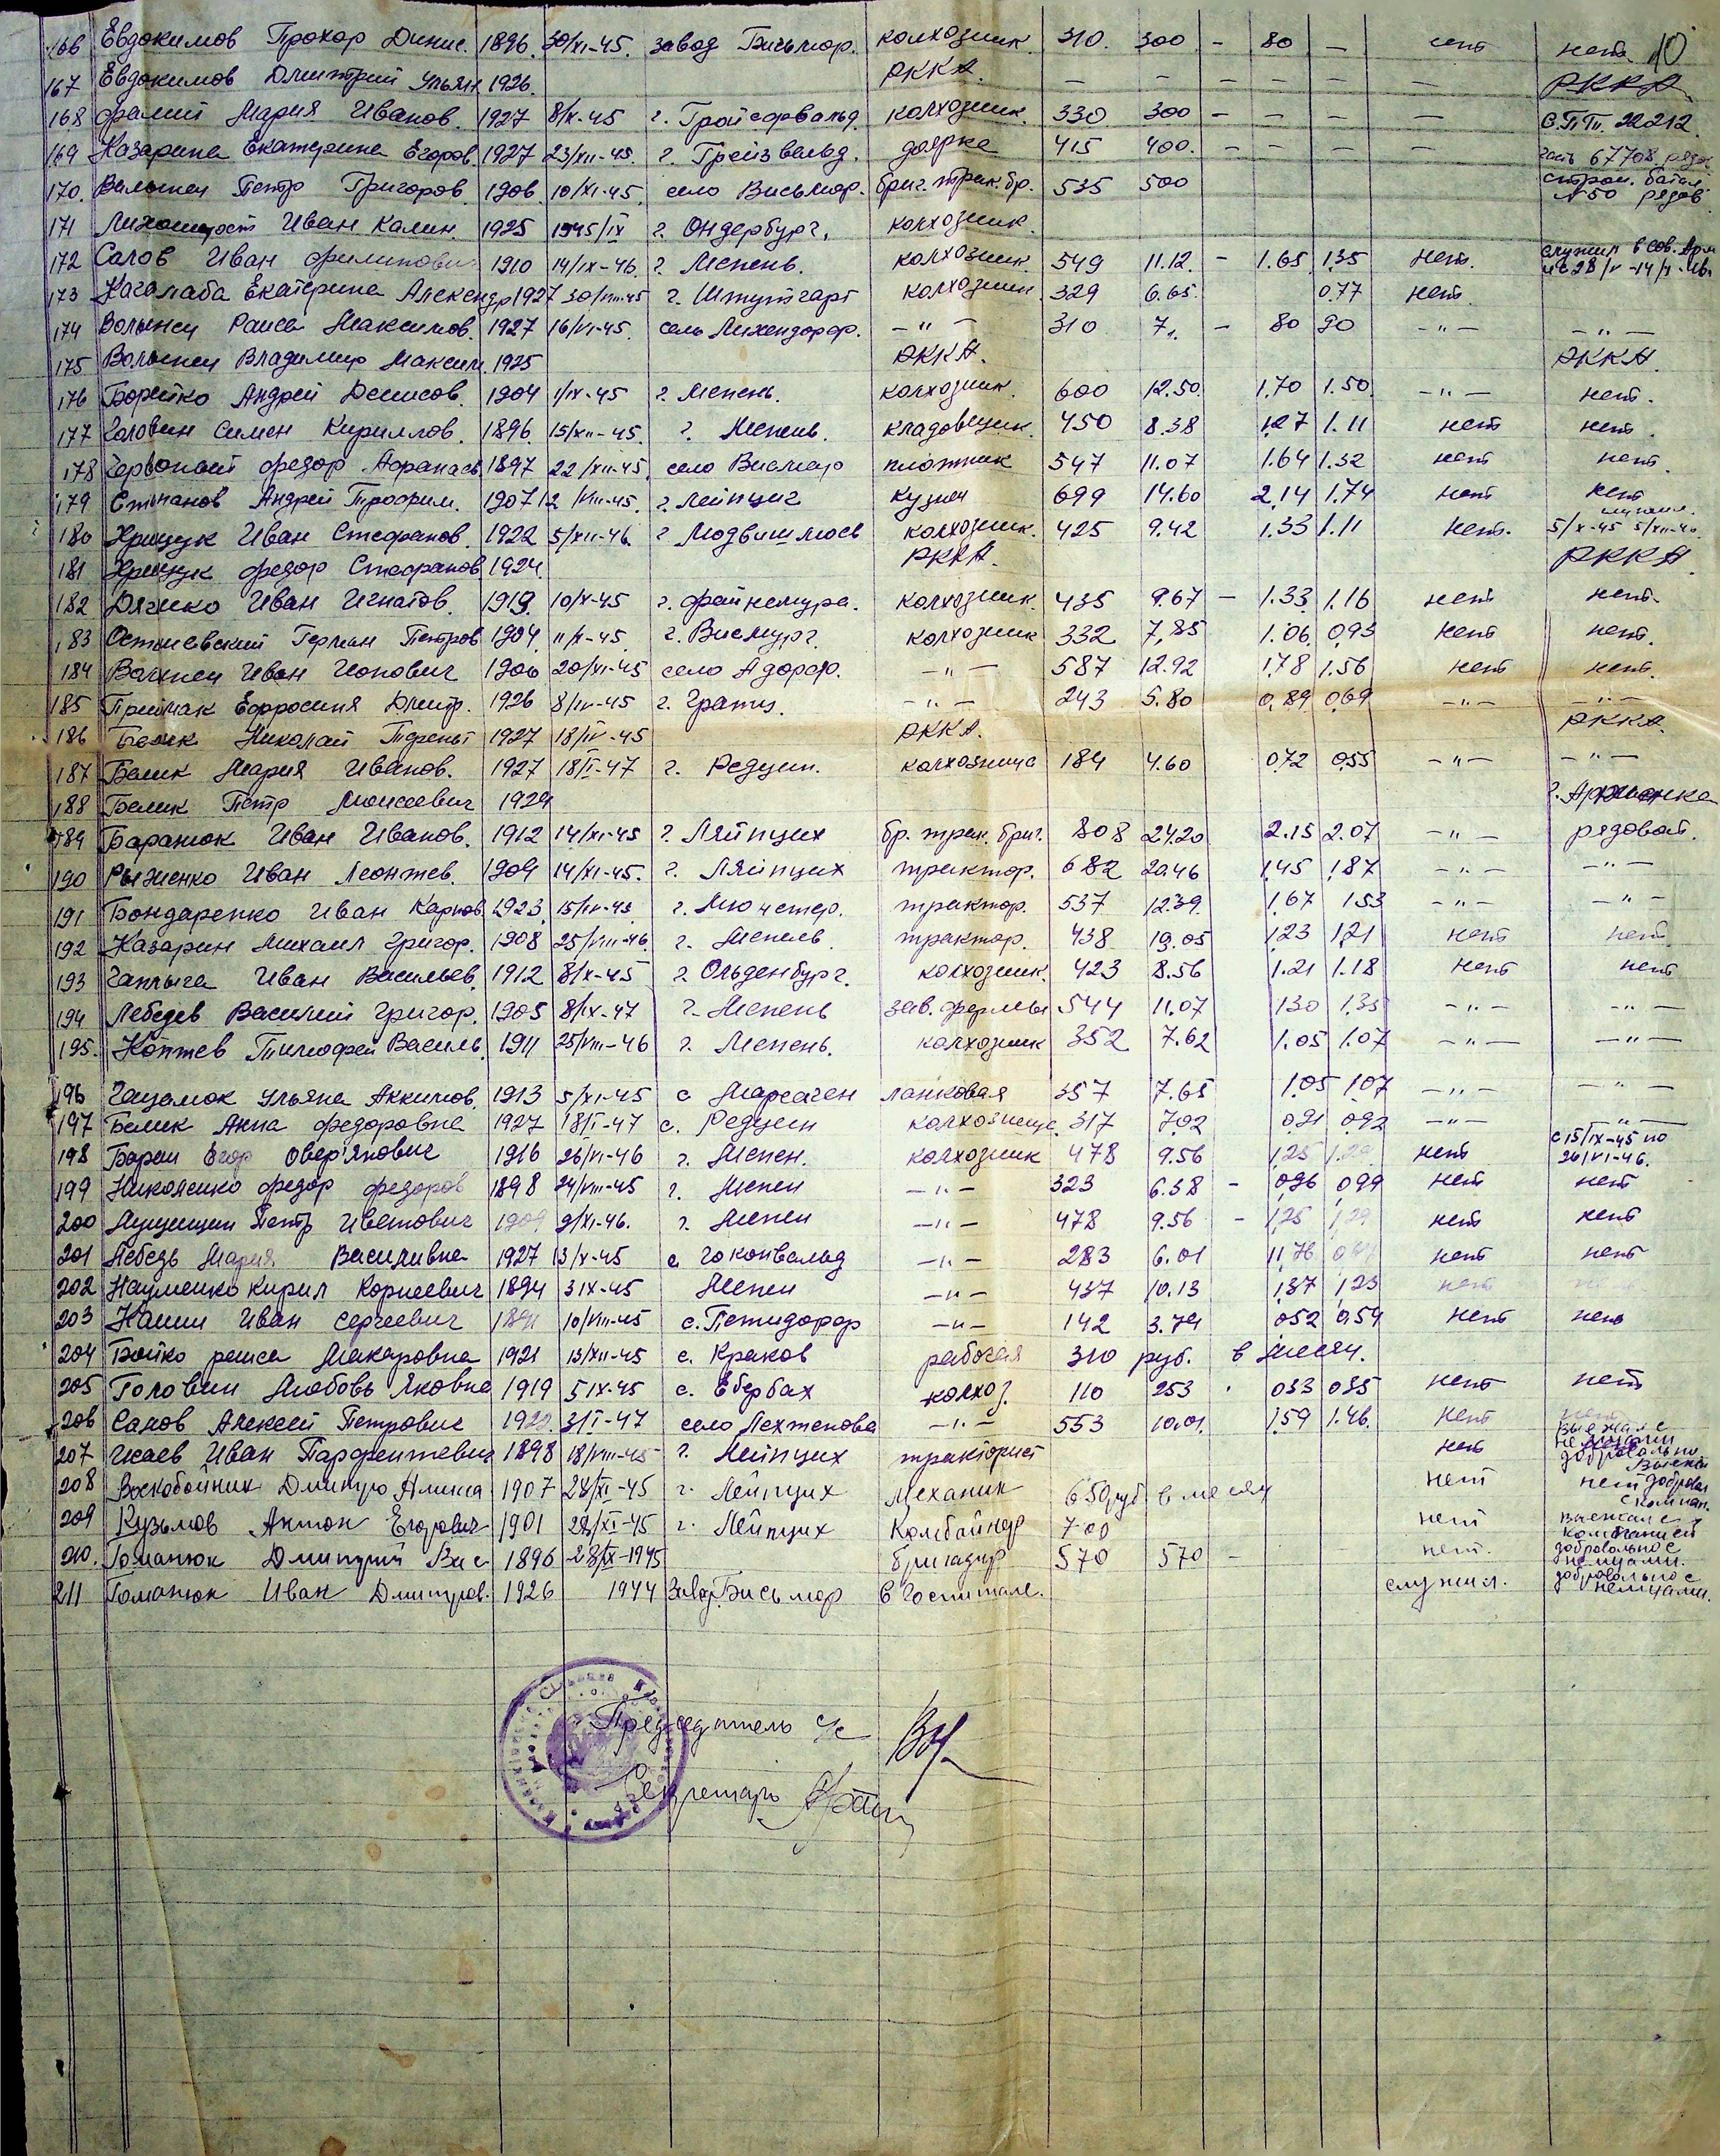 10
166 Евдокимов Прохор Динис. 1896. 30/XI-45. завод Бисьмар. колхозник. 310. 300 - 80 - нет нет.
167 Евдокимов Дмитрий Ульян 1926. РККА. - - - - - - РККА
168 Фамий Мария Иванов. 1927 8/X-45 г. Грайсфвальд. колхозник. 330 300 - - - - В.П.П. 22212.
169 Казарина Екатерина Егоров. 1927 23/XII-45. г. Грейзвальд. доярка 415 400. - - - - часть 67708 рядов.
170. Волынец Петр Григоров. 1906. 10/XI-45. село Висьмар. бриг. трак. бр. 535 500 строи. батал. N50 рядов.
171 Иван Калин. 1925 1945/IX г. Ондербург. колхозник.
172 Салов Иван Филипович 1910 14/IX-46. г. Мепень. колхозник. 549 11.12. - 1.65 1.35 нет. служил в Сов. Арм. с 28/V-14/X-
173 Кагалаба Екатерина Александр 1927 30/VIII-45 г. Штутгарт колхозник. 329 6.65. 0.77 нет.
174 Волынец Раиса Максимов. 1927 16/VI-45. село Лихендорф. -"- 310 7,, - 80 90 -"- -"-
175 Волынец Владимир Максим. 1925 РККА. РККА.
176 Борейко Андрей Денисов. 1904 1/IX-45 г. Мепень. колхозник. 600 12.50. 1.70 1.50. -"- нет.
177 Головин Симен Кириллов. 1896. 15/XII-45. г. Мепень. кладовщик. 450 8.38 1.27 1.11 нет нет.
178 Червоный Федор Афанасьв 1897 22/XII-45. село Висмар плотник 547 11.07 1.64 1.32 нет нет.
179 Степанов Андрей Трофим. 1907 12/VIII-45. г. Лейпциг кузнец 699 14.60 2.14 1.74 нет нет
180 Хрищук Иван Стефанов. 1922 5/XII-46. г. колхозник. 425 9.42 1.33 1.11 нет. служил. 5/X-45 5/XII-46
181 Хрищук Федор Стефанов 1924. РККА. РККА.
182 Дяченко Иван Игнатов. 1919. 10/X-45 г. Файнемура. колхозник. 435 9.67 - 1.33 1.16 нет нет.
183 Герман Петров 1904. 11/X-45. г. Висмург. колхозник 332 7.85 1.06 0.93 нет нет.
184 Иван Ионович 1906 20/XI-45 село Адорф. -"- 587 12.92 1.78 1.56 нет нет.
185 Приймак Ефросиня Дмитр. 1926 8/IX-45 г. Гратц. -"- 243 5.80 0.89 0.69 -"- -"-
186 Белик Николай Терень 1927 18/IV-45 РККА. РККА.
187 Белик Мария Иванов. 1927 18/I-47 г. Редцин. колхозница 184 4.60 0.72 0.55 -"- -"-
188 Белик Петр Моисеевич 1924
189 Баранюк Иван Иванов. 1912 14/XI-45 г. Ляйпцих бр. трак. бриг. 808 24.20 2.15 2.07 -"- рядовой.
190 Рыженко Иван Леонтев. 1904 14/XI-45. г. Ляйпцих трактор. 682 20.46 1.45 1.87 -"- -"-
191 Бондаренко Иван Карпов 1923 15/IX-45 г. Мюнстер. трактор. 537 12.39. 1.67 1.53 -"- -"-
192 Казарин Михаил Григор. 1908 25/VIII-46 г. Мепель трактор. 438 19.05 1.23 1.21 нет нет
193 Чаплыга Иван Васильев. 1912 8/X-45 г. Ольденбург. колхозник. 423 8.56 1.21 1.18 нет нет
194 Лебедев Василий Григор. 1905 8/IX-47 г. Мепень зав. фермы 544 11.07 1.30 1.35 -"- -"-
195. Коптев Тимофей Василь. 1911 25/VIII-46 г. Мепень. колхозник 352 7.62 1.05 1.07 -"- -"-
196 Ульяна Аккимов. 1913 5/XI-45 с Марсаген ланковая 357 7.65 1.05 1.07 -"- -"-
197 Белик Анна Федоровна 1927 18/I-47 с. Редцин колхозница. 317 7.02 0.91 0.92 -"- -"-
198 Баран Егор Овер'янович 1916 26/VI-46 г. Мепен. колхозник 478 9.56 1.25 1.29 нет с 15/IX-45 по 26/VI-46.
199 Николенко Федор Федоров 1898 24/VIII-45 г. Мепен -"- 323 6.38 - 0.96 0.99 нет нет
200 Петр Иванович 1909 9/XI-46. г. Мепен -"- 478 9.56 - 1.25 1.29 нет нет
201 Лебедь Мария Василивна 1927 13/X-45 с. Гоконвальд -"- 283 6.01 11.76 нет нет
202 Науменко Кирил Корнеевич 1894 3 IX-45 Мепен -"- 437 10.13 1.37 1.23 нет
203 Иван Сергеевич 10/VIII-45 с. Петидорф -"- 142 3.74 0.52 0.54 нет нет
204 Бойко раиса Макаровна 1921 13/XII-45 с. Краков рабочая 310 руб. в месяч.
205 Головин Любовь Яковна 1919 5 IX-45 с. Ебербах колхоз. 110 2.53 0.33 0.35 нет нет
206 Салов Алексей Петрович 31/I-47 село Лехтенова -"- 553 10.01. 1.59 1.46. нет нет
207 Исаев Иван Парфентевич 1898 18/VIII-45 г. Лейпцих тракторист нет выехал с немцами добровольно
208 Воскобойник Дмитро 1907 28/XI-45 г. Лейпцих механик 650 руб в месяц нет нет доброволь с компан.
209 Кузьмов Антон Егорович 1901 28/XI-45 г. Лейпцих Комбайнер 700 нет выехал с компанией
210. Гоманюк Дмитрий Вас 1896 28/IX-1945 бригадир 570 570 - нет. добровольно с немцами.
211 Гоманюк Иван Дмитров. 1926 1944 Завод Бисьмар в Госпитале. служил. добровольно с немцами.
Председатель с/с
Секретарь